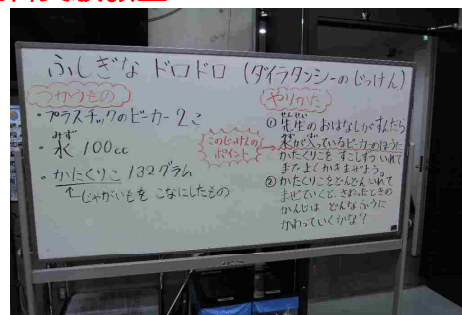 ふしぎな ドロドロ (ダイラタンシーの じっけん)
つかうもの
・プラスチックのビーカー 2こ
みず
・水 100cc
・かたくりこ 132グラム
↑じゃがいもを こなにしたもの
このじっけんの
ポイント
やりかた
せんせい
① 先生のおはなしがすんだら
みず
水が入っているビーカーのほうに
かたくりこを すこしずつ いれて
また よくかきまぜよう。
② かたくりこをどんどん いれて
まぜていくと、さわったときの
かんじは どんなふうに
かわっていくかな?